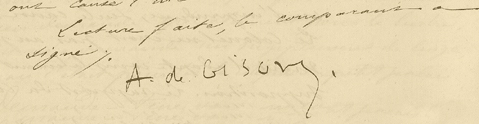 ont cause
Lecture faite, le comparant a
signé.
A. de Gisors.